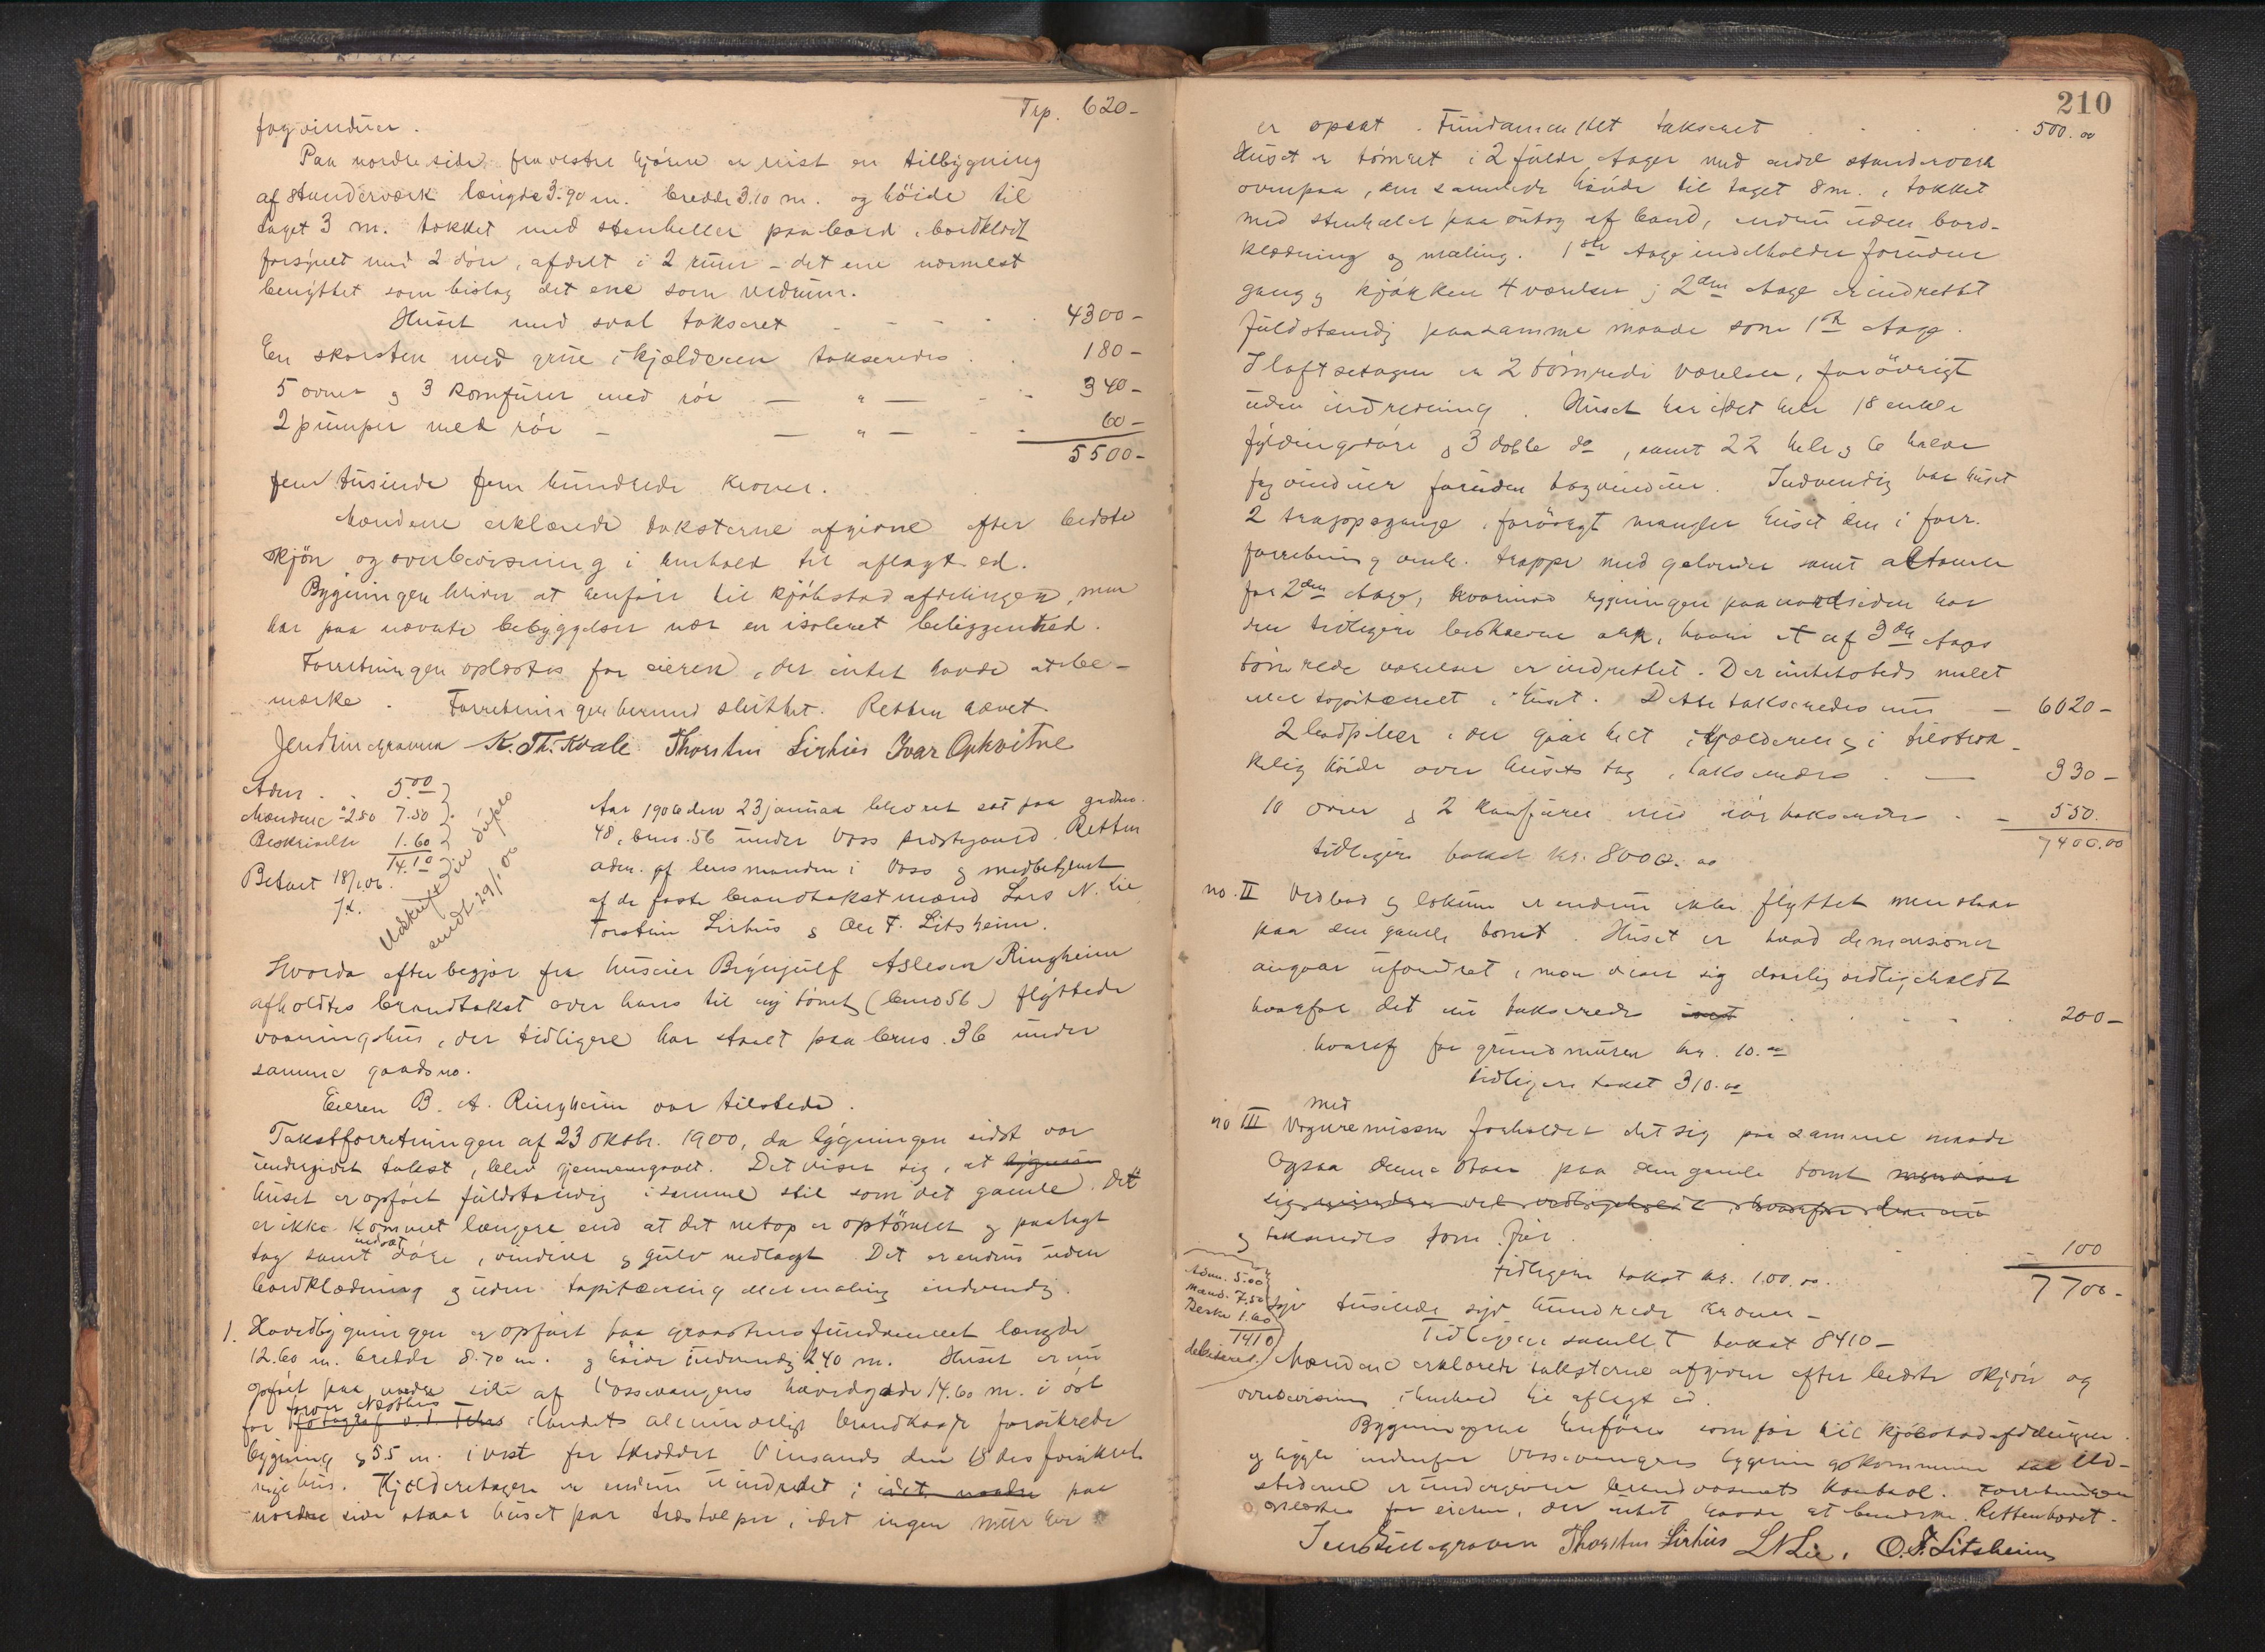 Trp. 620-
fagvinduer.
Paa nordre side fra vestre hjörne er reist en tilbygning
af standerværk længde 3.90 m. bredde 3.10 m. og höide til
taget 3 m. tækket med stenheller paa bord, bordklædt
forsynet med 2 döre, afdelt i 2 rum - det ene nærmest
benyttet som bislag det ene som vedrum.
Huset med sval takseret - - - 4300-
En skorsten med grue i kjælderen takseredes . . 180-
5 ovner og 3 komfurer med rör — " — - - 340-
2 pumper med rör - — " — - - 60-
5500-
fem tusinde fem hundrede kroner.
Mændene erklærede taksterne afgivne efter bedste
skjön og overbevisning i henhold til aflagt ed.
Bygningen bliver at henföre til kjöbstadafdelingen, men
har paa nævnte bebyggelser nær en isoleret beliggenhed.
Forretningen oplæstes for eieren, der intet havde at be-
mærke. Forretningen hermed sluttet. Retten hævet.
Jens Lindegraven K. Th. Kvale Thorstein Lirhus Ivar Opkvitne
Adm. . 5.00
Mændene à 2.50 7.50
Beskrivelse 1.60
14.10
Betalt 18/1 06.
Udskrift in duplo
sendt 29/1 06
Aar 1906 den 23 januar blev ret sat paa gardsno.
48, bno. 56 under Voss prestegaard. Retten
adm. af lensmanden i Voss og medbetjent
af de faste brandtakstmænd Lars N. Lie
Torstein Lirhus og Ole F. Litsheim.
Hvorda efter begjær fra huseier Brynjulf Aslesen Ringheim
afholdtes brandtakst over hans til ny tomt (bno 56) flyttede
vaaningshus, der tidligere har staaet paa bno. 36 under
samme gaards no.
Eieren B. A. Ringheim var tilstede.
Takstforretningen af 23 oktbr. 1900, da bygningen sidst var
undergivet takst, blev gjennemgaaet. Det viser sig, at bygnin
huset er opfört fuldstændig i samme stil som det gamle. Det
er ikke kommet længere end at det netop er optömret og paalagt
tag samt indsat döre, vinduer og gulv nedlagt. Det er endnu uden
bordklædning og uden tapitsering eller maling indvendig.
1. Hovedbygningen er opfört paa graastensfundament længde
12.60 m. bredde 8.70 m. og höide indvendig 2.40 m. Huset er nu
opfört paa nordre side af Vossevangens hovedgade 14.60 m. i öst
for fotograf o.s. i landets almindelige brandkasse forsikrede
bygning og 5.5 m. i vest for skrædder Vinsands den 18 des forsikrede
nye hus. Kjælderetagen er endnu uindredet; idet nordre paa
nordre side staar huset paa træstolper, idet ingen mur her
210
er opsat. Fundamentet takseret . . . . 500.00
Huset er tömret i 2 fulde etager med endel standerværk
ovenpaa, den samlede höide til taget 8 m., tækket
med stenheller paa undtag af bord, endnu uden bord-
klædning og maling. 1ste etage indeholder foruden
gang og kjökken 4 værelser; 2den etage er indrettet
fuldstændig paa samme maade som 1ste etage.
I loftsetagen er 2 tömrede værelser, forövrigt
uden indredning. Huset har i det hele 18 enkle
fyldingsdöre og 3 doble do, samt 22 hele og 6 halve
fagvinduer foruden tagvinduer. Indvendig har huset
2 trappegange, forövrigt mangler huset den i forr.
forretning omh. trappe med gelænder samt altanen
for 2den etage, hvorimod bygningen paa nordsiden har
den tidligere beskrevne ark, hvori et af 3die etages
tömrede værelser er indrettet. Der intetsteds malet
eller tapitseret i huset. Dette takseredes nu — 6020-
2 brandpiber, der gaar helt i kjælderen og i tilstræk-
kelig höide over husets tag, takseredes . — 330-
10 ovner og 2 komfurer med rör takseredes . - 550.
7400.00
tidligere takst kr. 8000.00
no. II Vedbod og lokum er endnu ikke flyttet men staar
paa den gamle tomt. Huset er hvad dimensioner
angaar uforandret, men viser sig daarlig vedligeholdt
hvorfor det nu takseredes . . . . 200-
hvoraf for grundmuren kr. 10.00
tidligere takst 310.00
no III med Vognremissen forholder det sig paa samme maade
Ogsaa denne staar paa den gamle tomt men viser
sig mindre vel vedligeholdt, hvorfor den nu
og takseredes som för . . . . . - 100
tidligere takst kr. 100.00.
7700-
Adm. 5.00
Mænd. 7.50
Beskr 1.60
14.10
debiteret.
Syv tusinde syv hundrede kroner -
Tidligere samlet takst 8410-
Mændene erklærede taksterne afgivne efter bedste skjön og
overbevisning i henhold til aflagt ed.
Bygningerne henföres som för til kjöbstadafdelingen.
og ligger indenfor Vossevangens bygningskommune. Ild-
stederne er undergivne brandvæsenets kontrol. Forretningen
oplæstes for eieren, der intet havde at bemærke. Retten hævet.
Jens Lindegraven Thorstein Lirhus L N Lie, O. F. Litsheim